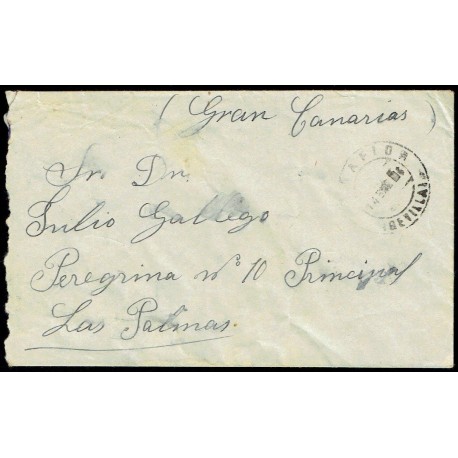 (Gran Canarias)
Sr. Dn.
Julio Gallego
Peregrina nº 10 Principal
Las Palmas.
(SEVILLA)